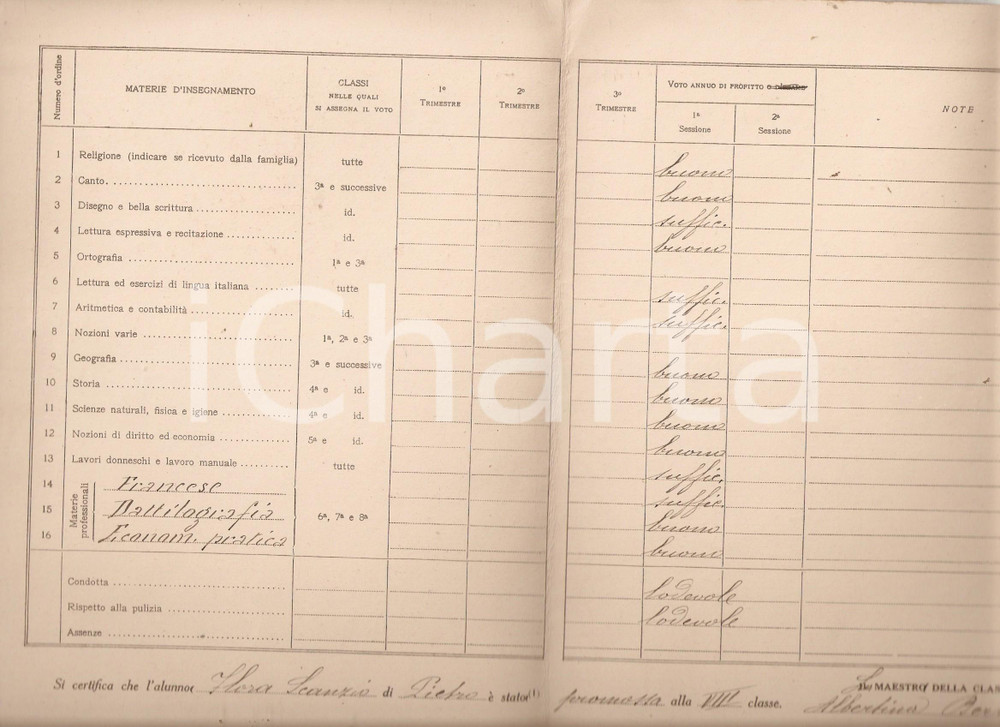 Numero d'ordine
MATERIE D'INSEGNAMENTO
CLASSI NELLE QUALI SI ASSEGNA IL VOTO
1º TRIMESTRE
2º TRIMESTRE
3º TRIMESTRE
VOTO ANNUO DI PROFITTO
1ª Sessione
2ª Sessione
NOTE
1 Religione (indicare se ricevuto dalla famiglia) tutte buono
2 Canto. 3ª e successive buono
3 Disegno e bella scrittura id. suffic.
4 Lettura espressiva e recitazione id. buono
5 Ortografia 1ª e 3ª
6 Lettura ed esercizi di lingua italiana tutte suffic.
7 Aritmetica e contabilità id. suffic.
8 Nozioni varie 1ª, 2ª e 3ª
9 Geografia 3ª e successive buono
10 Storia 4ª e id. buono
11 Scienze naturali, fisica e igiene 4ª e id. buono
12 Nozioni di diritto ed economia 5ª e id. buono
13 Lavori donneschi e lavoro manuale tutte suffic.
Materie professionali
14 Francese suffic.
15 Dattilografia 6ª, 7ª e 8ª buono
16 Econom. pratica buono
Condotta lodevole
Rispetto alla pulizia lodevole
Assenze
Si certifica che l'alunno Flora Scanzio di Pietro è stato (1) promossa alla VIII classe.
MAESTRO DELLA CLAS
Albertina
iCharta